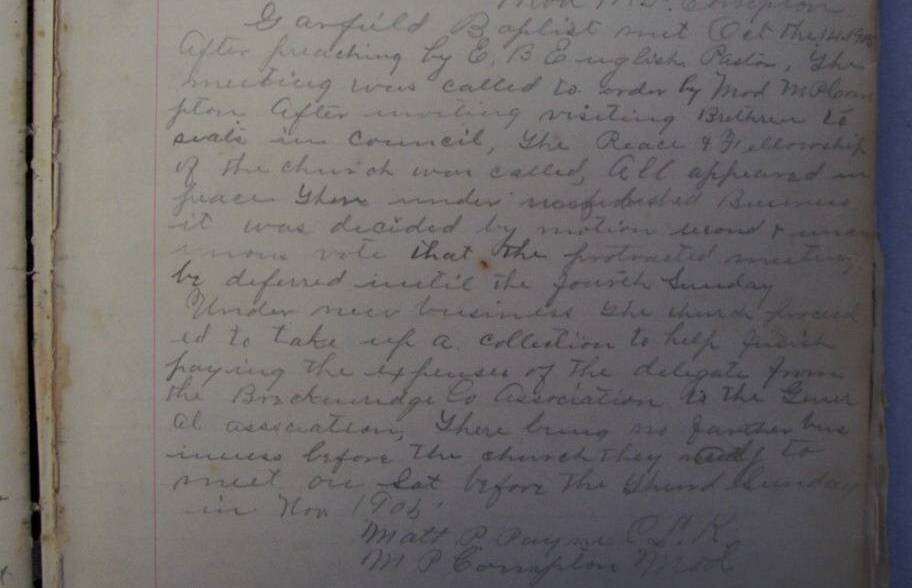 Mod M. P. Compton
Garfield Baptist met Oct the
After preaching by E. B English Pastor, The
meeting was called to order by Mod M P Com
pton After inviting visiting Brethren to
seats in council, The Peace & Fellowship
of the church was called, All appeared in
peace Then under unfinished Business
it was decided by motion second & unan
imous vote that the protracted meeting
be deferred until the fourth Sunday
Under new business the church proceed
ed to take up a collection to help finish
paying the expenses of the delegate from
the Breckenridge Co Association to the Gener
al association, There being no further bus
iness before the church they adj to
meet on Sat before the third Sunday
in Nov 1905
Matt P Payne C L K
M P Compton Mod